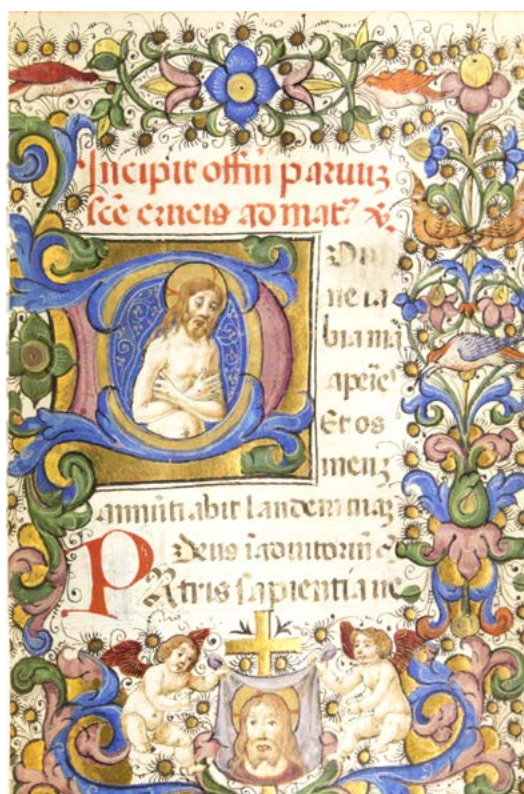 Incipit offiu paruuz
scē crucis ad mat? v.
Domi
ne la
bia mā
apeīe
Et os
meuz
annūtiabit laudem tuaz
Deus ī adiutoriū
Patris sapientia ve